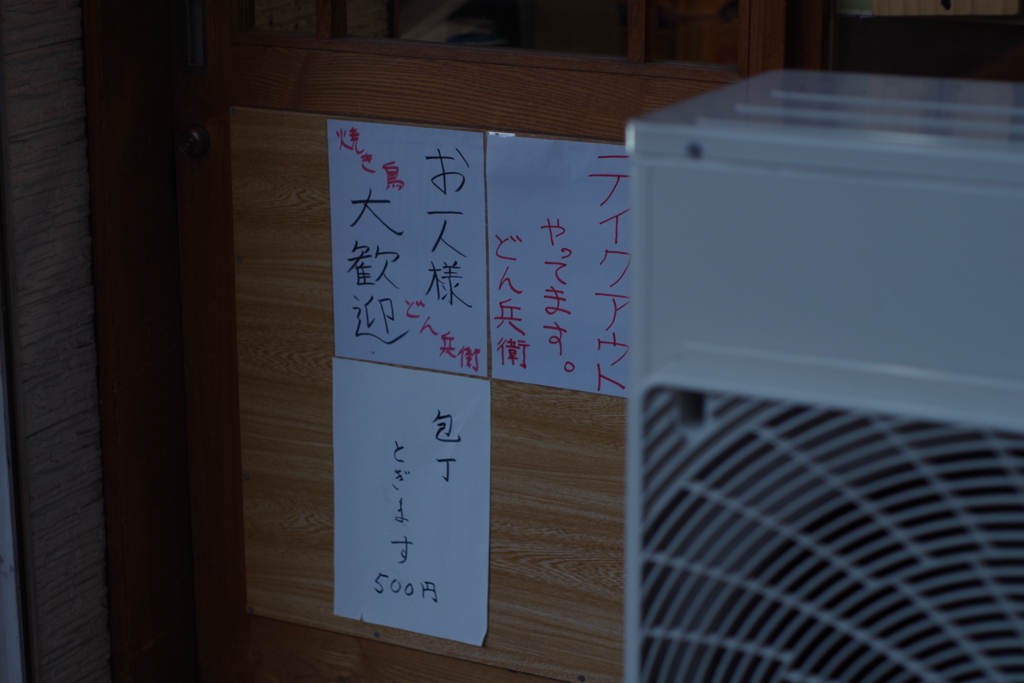 テイクアウト
やってます。
どん兵衛
お一人様
焼き鳥
大歓迎
どん兵衛
包丁
とぎます
500円